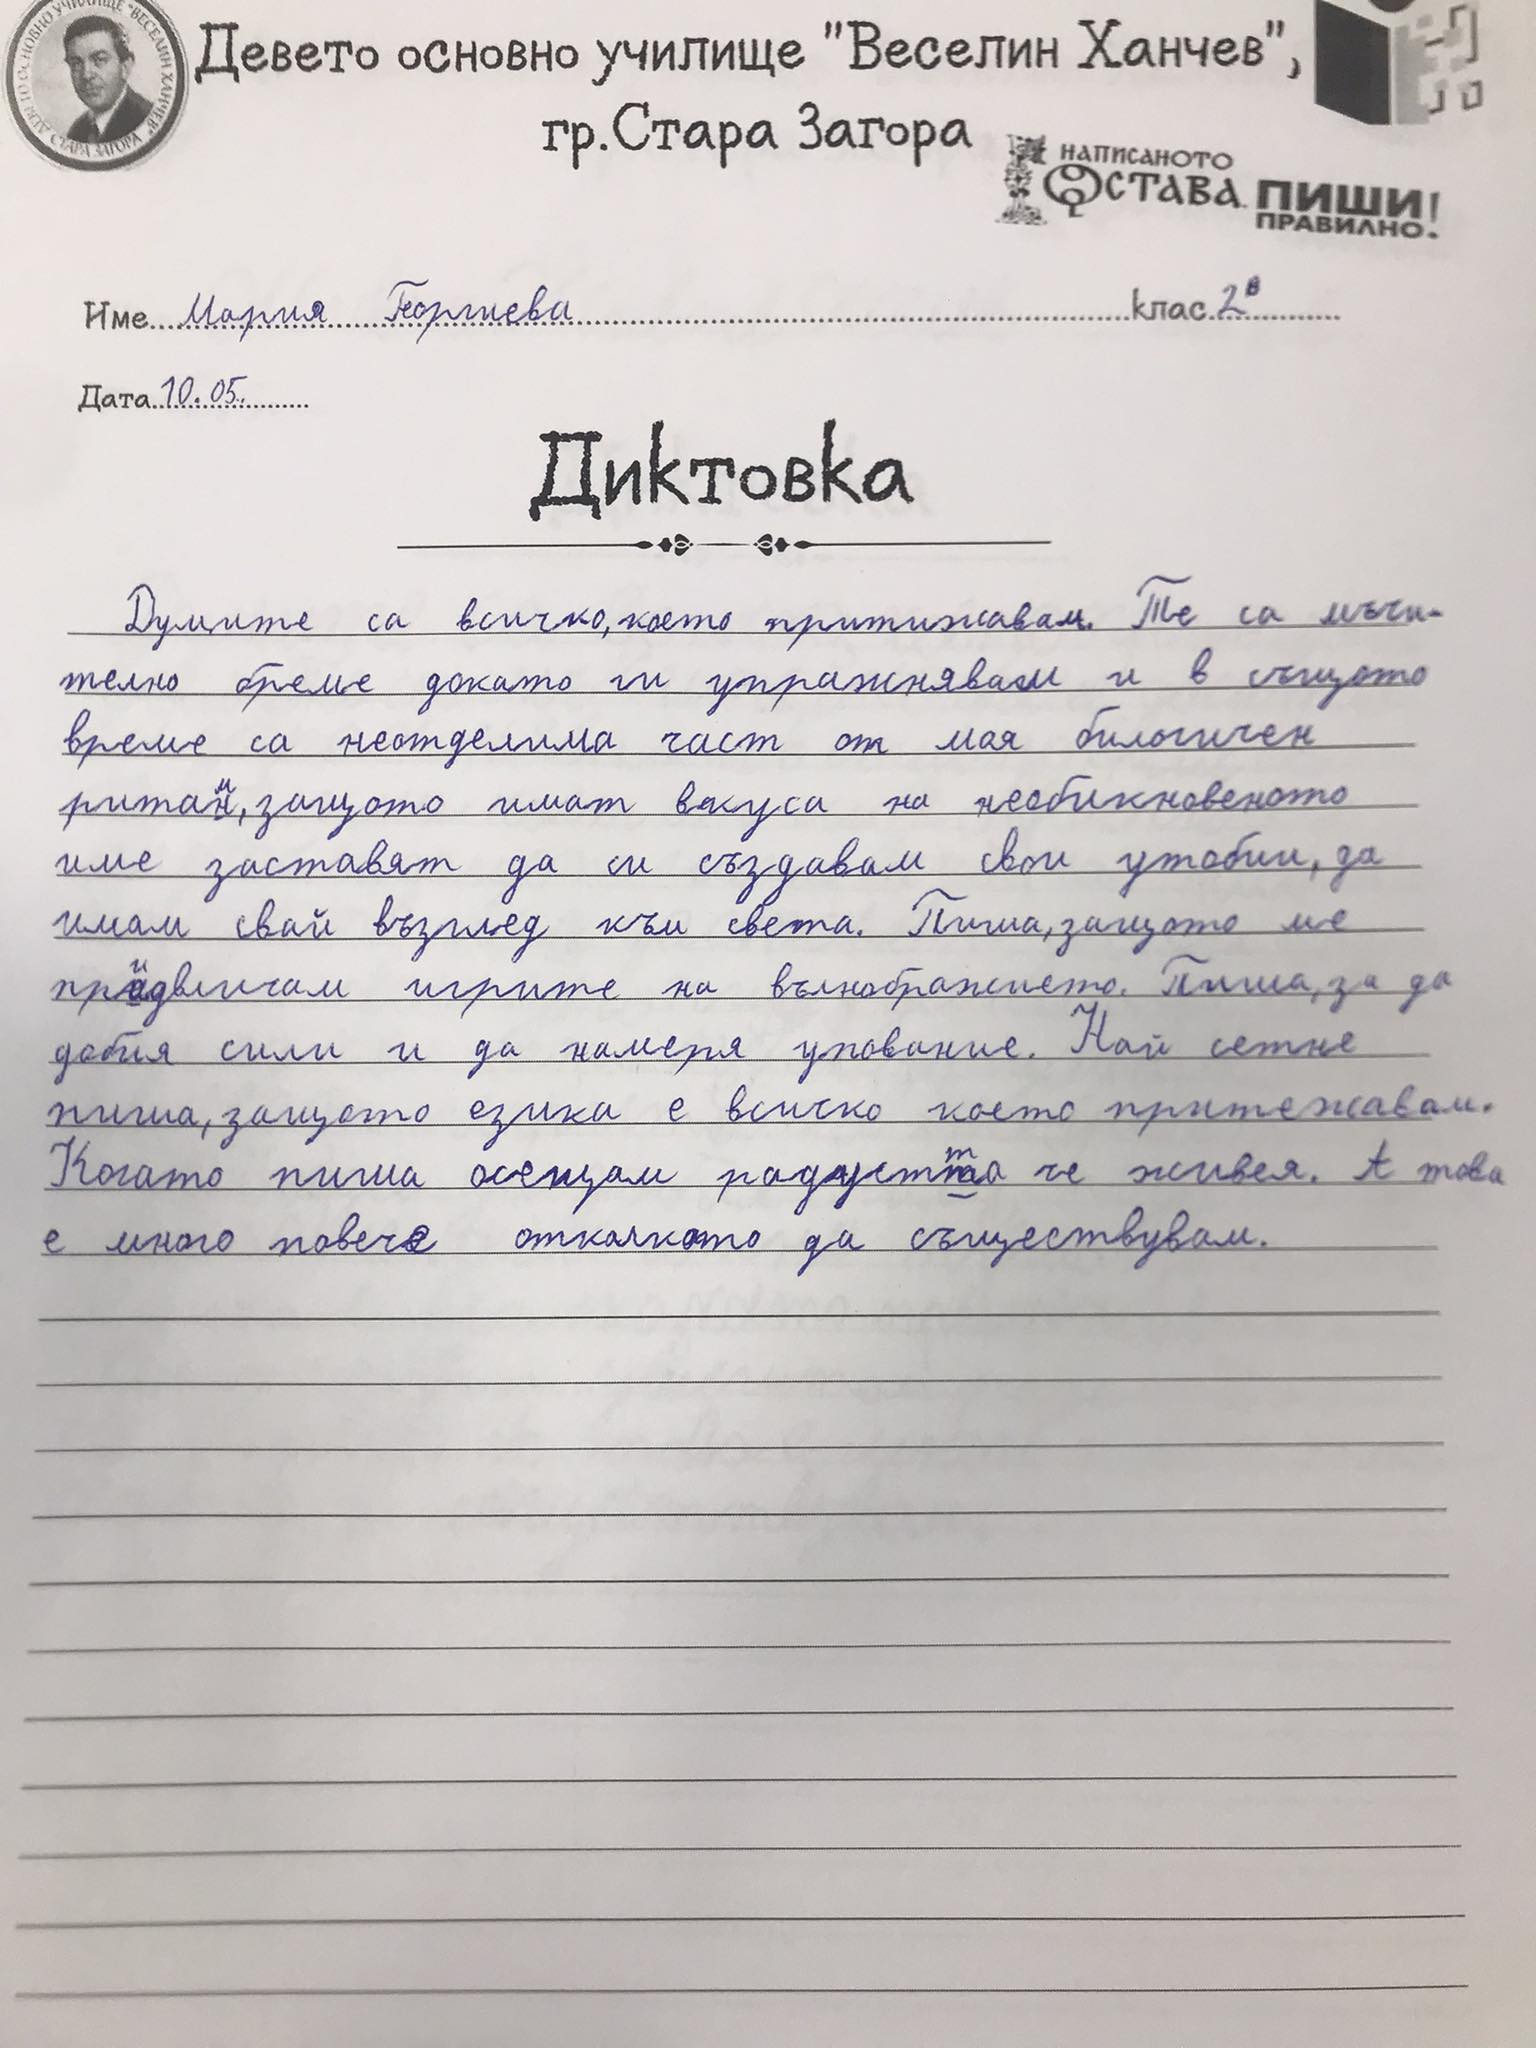 ДЕВЕТО ОСНОВНО УЧИЛИЩЕ "ВЕСЕЛИН ХАНЧЕВ" СТАРА ЗАГОРА
Девето основно училище "Веселин Ханчев",
гр.Стара Загора
НАПИСАНОТО
ОСТАВА. ПИШИ
ПРАВИЛНО!
Име Мария Георгиева клас 2в
Дата 10.05.
Диктовка
Думите са всичко, което притижавам. Те са мъчи-
телно бреме докато ги упражнявам и в същото
време са неотделима част от мая билогичен
ритам, защото имат вкуса на необикновеното
име заставят да си създавам свои утобии, да
имам свай възглед към света. Пиша, защото ме
придвличам игрите на вълнображието. Пиша, за да
добия сили и да намеря упование. Най сетне
пиша, защото езика е всичко което притежавам.
Когато пиша осещам радустта че живея. А това
е много повече откалкото да съществувам.